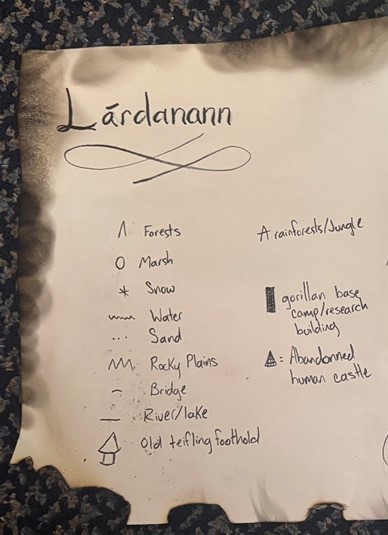 Lárdanann
Forests
Marsh
Snow
Water
Sand
Rocky Plains
Bridge
River/lake
Old teifling foothold
rainforests/Jungle
gorillan base
camp/research
building
: Abandonned
human castle